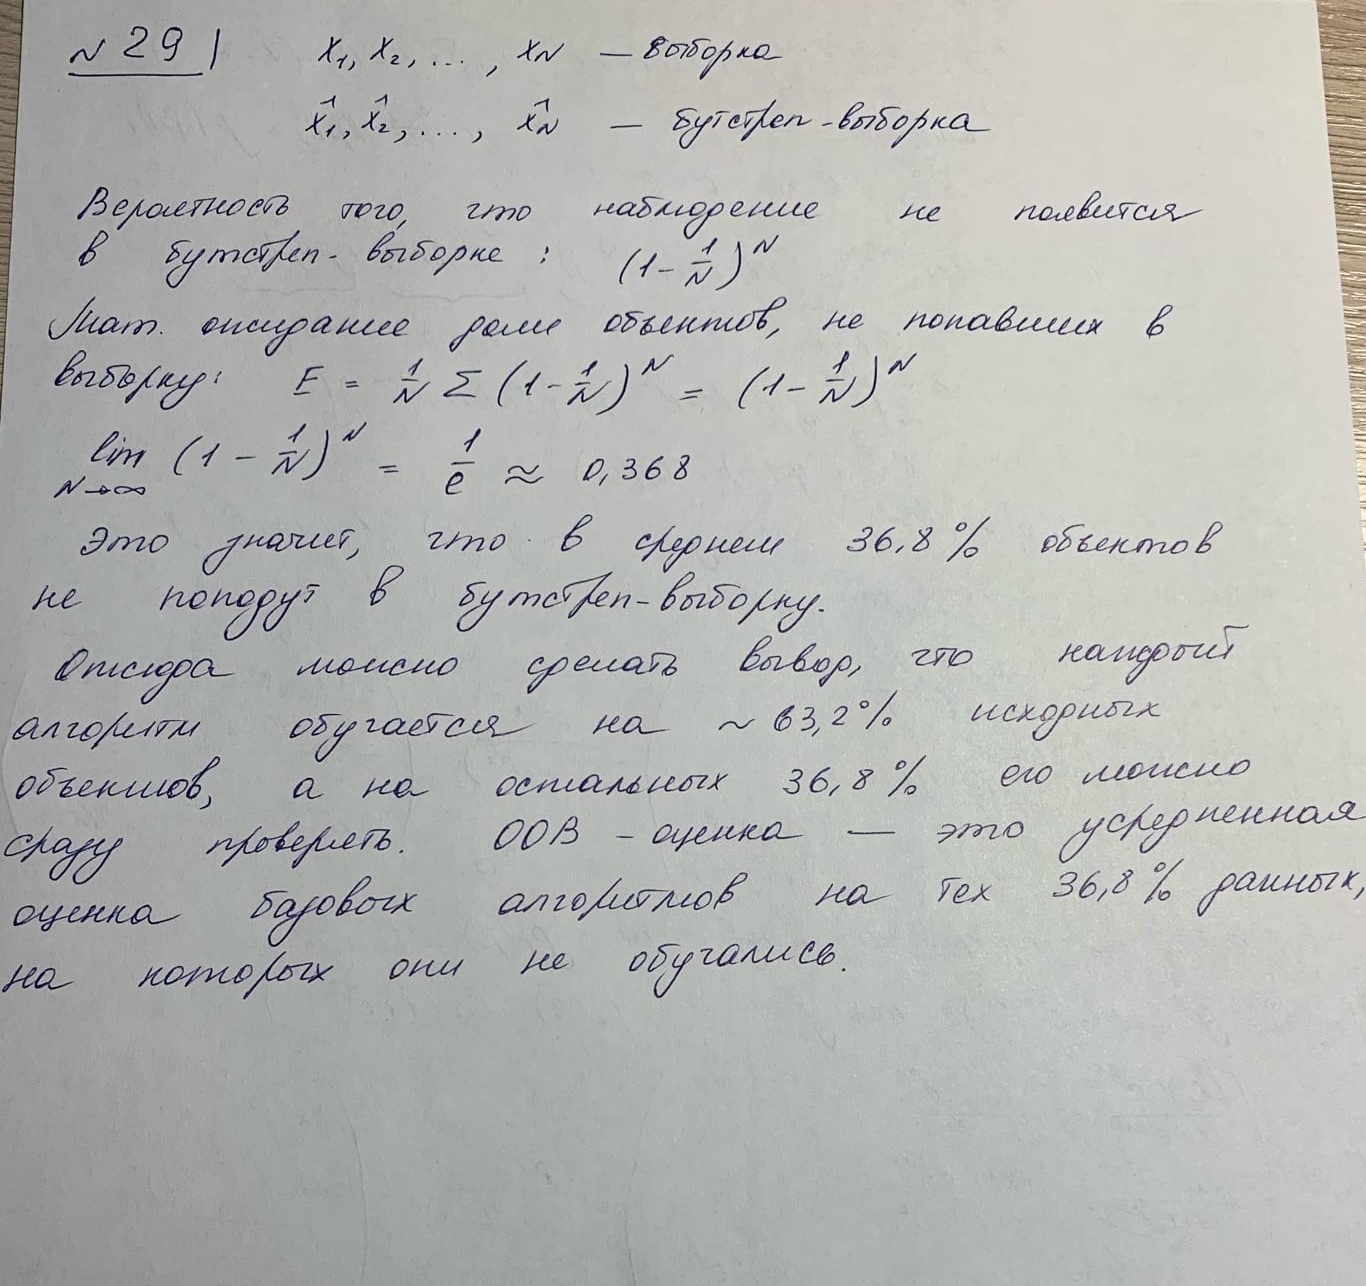 № 29
x₁, x₂, ..., x_N — выборка
x̂₁, x̂₂, ..., x̂_N — бутстреп-выборка
Вероятность того, что наблюдение не появится
в бутстреп-выборке: (1 - 1/N)^N
Мат. ожидание доли объектов, не попавших в
выборку: E = 1/N Σ (1 - 1/N)^N = (1 - 1/N)^N
lim N→∞ (1 - 1/N)^N = 1/e ≈ 0,368
Это значит, что в среднем 36,8% объектов
не попадут в бутстреп-выборку.
Отсюда можно сделать вывод, что каждый
алгоритм обучается на ~ 63,2% исходных
объектов, а на остальных 36,8% его можно
сразу проверять. OOB - оценка — это усредненная
оценка базовых алгоритмов на тех 36,8% данных,
на которых они не обучались.